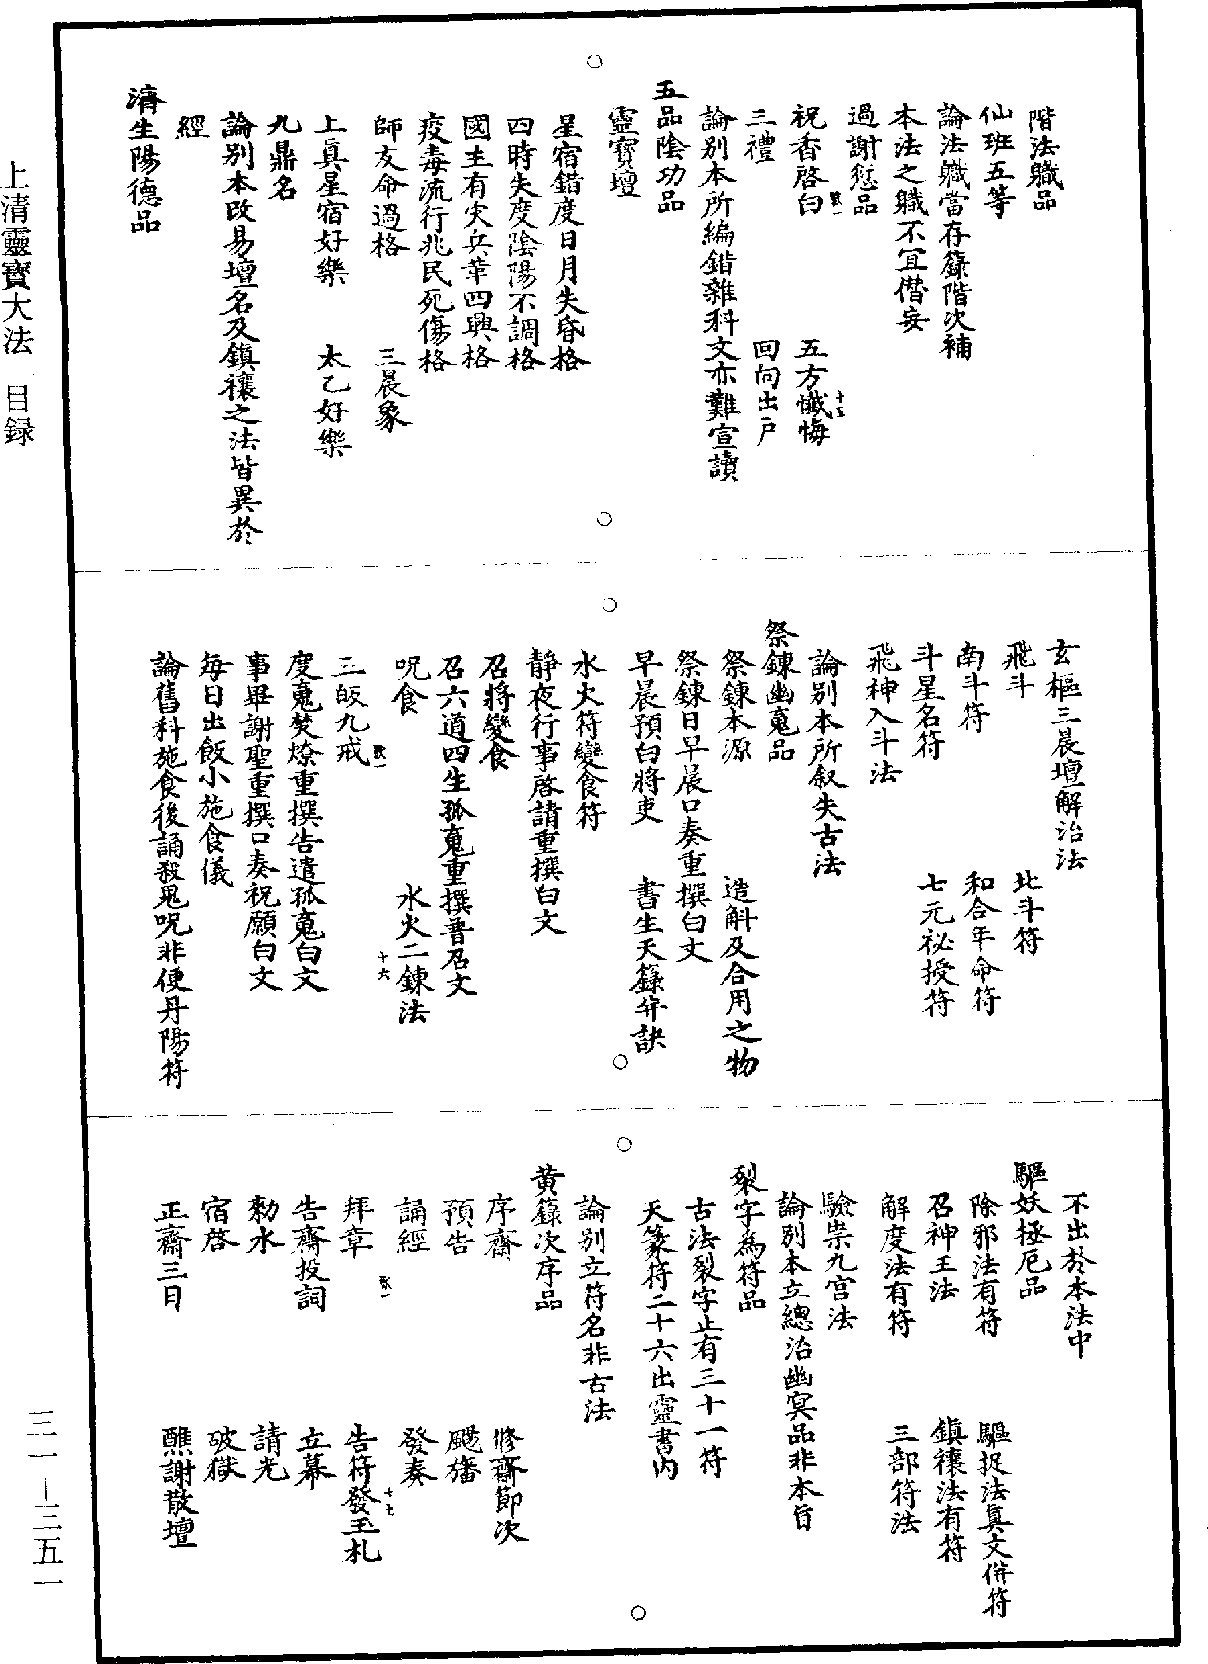 階法職品
仙班五等
論法職當存籙階次補
本法之職不冝僣妄
過謝愆品
祝香啓白 五方懺悔
三禮 回向出戸
論別本所編錯雜科文亦難宣讀
五品陰功品
靈寶壇
星宿錯度日月失昏格
四時失度陰陽不調格
國主有灾兵革四興格
疫毒流行兆民死傷格
師友命過格 三晨象
上真星宿好樂 太乙好樂
九鼎名
論別本改易壇名及鎮禳之法皆異於
經
濟生陽德品
玄樞三晨壇解治法
飛斗 北斗符
南斗符 和合年命符
斗星名符 七元祕授符
飛神入斗法
論別本所叙失古法
祭鍊幽䰟品
祭鍊本源 造斛及合用之物
祭鍊日早晨口奏重撰白文
早晨預白將吏 書生天籙并訣
水火符變食符
靜夜行事啓請重撰白文
召將變食
召六道四生孤䰟重撰普召文
呪食 水火二鍊法
十六
三皈九戒
度䰟焚燎重撰告遣孤䰟白文
事畢謝聖重撰口奏祝願白文
每日出飯小施食儀
論舊科施食後誦殺鬼呪非便丹陽符
不出於本法中
驅妖拯厄品
除邪法有符 驅捉法真文併符
召神王法 鎮禳法有符
解度法有符 三部符法
驗祟九宫法
論別本立總治幽冥品非本旨
裂字為符品
古法裂字止有三十一符
天篆符二十六出靈書内
論別立符名非古法
黄籙次序品
序齋 修齋節次
預告 颺旛
誦經 發奏
十七
拜章 告符發玉札
告齋投詞 立幕
勑水 請光
宿啓 破獄
正齋三日 醮謝散壇
上清靈寳大法 目録
三一—三五一